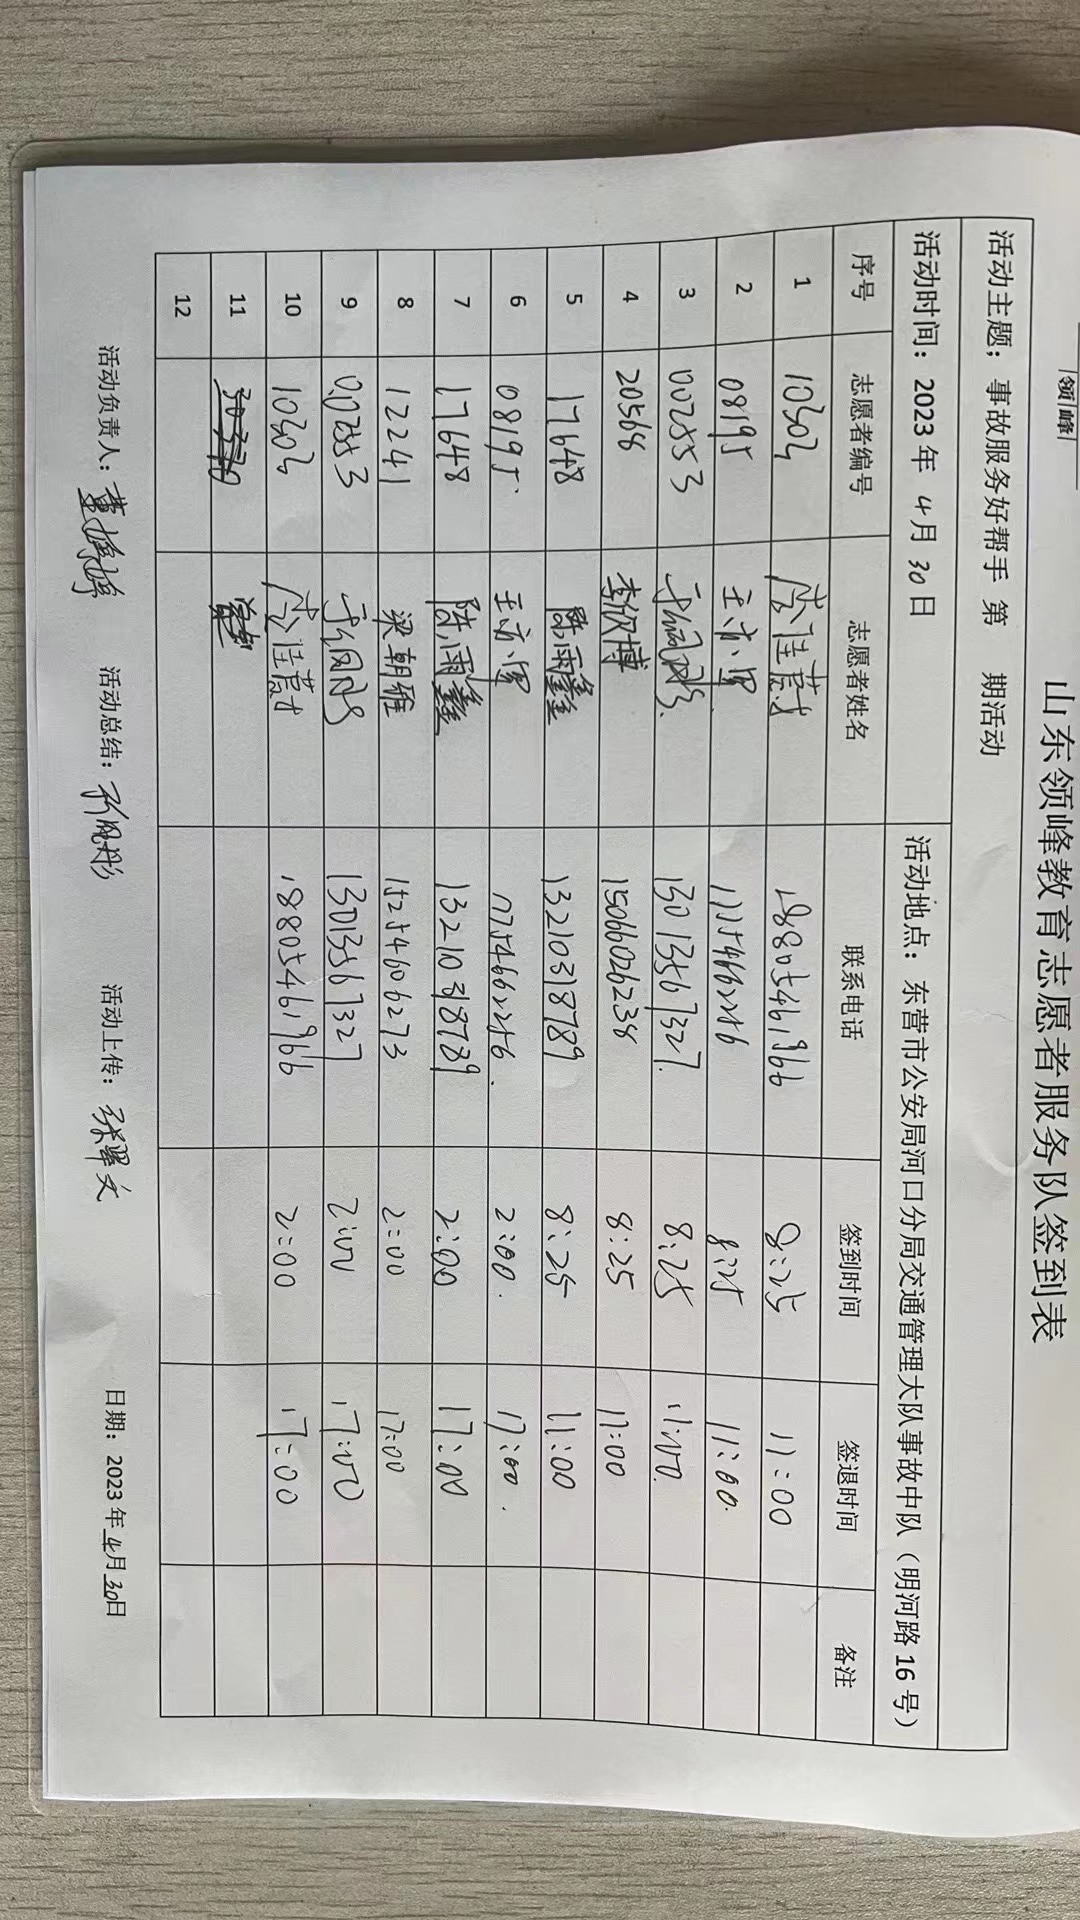 领峰
山东领峰教育志愿者服务队签到表
活动主题：事故服务好帮手 第 期活动
活动时间：2023年 4月 30日 活动地点：东营市公安局河口分局交通管理大队事故中队（明河路16号）
序号 志愿者编号 志愿者姓名 联系电话 签到时间 签退时间 备注
1 10302 18805461966 8:25 11:00
2 08195 17754662256 8:25 11:00.
3 002553 13013567327. 8:25 11:00.
4 20568 李欣博 15066026238 8:25 11:00
5 17648 陈雨鑫 13210318789 8:25 11:00
6 08195. 17754662256. 2:00. 17:00.
7 17648 陈雨鑫 13210318789 2:00 17:00
8 12241 梁朝雅 15254606273 2:00 17:00
9 002553 13013567327 2:00 17:00
10 10302 18805461966 2:00 17:00
11
12
活动负责人：董婷婷 活动总结： 活动上传：张翠文 日期：2023年4月30日